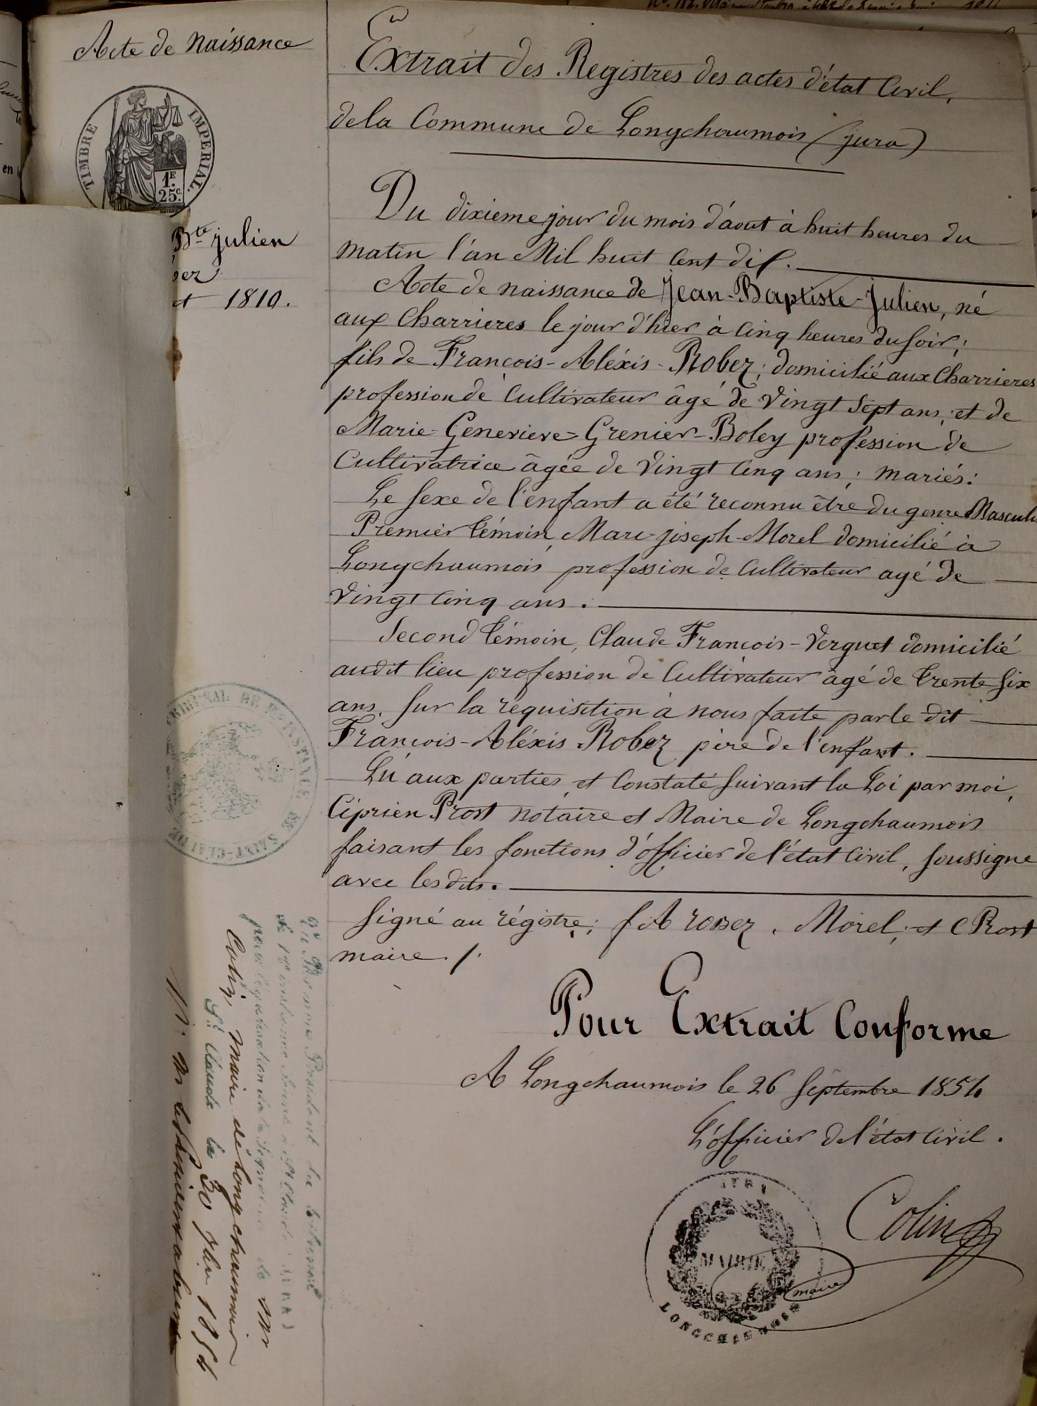 Acte de Naissance
TIMBRE IMPERIAL.
1F.
25c.
Bte julien
bez
et 1810.
Extrait des Registres des actes d'état Civil,
de la Commune de Longchaumois (jura)
Du dixieme jour du mois d'aout à huit heures du
matin l'an Mil huit Cent dix.
Acte de naissance de Jean-Baptiste-Julien, né
aux Charrieres le jour d'hier à Cinq heures du soir;
fils de François-Aléxis-Robez; domicilié aux Charrieres
profession de Cultivateur âgé de Vingt Sept ans, et de
Marie-Genevieve-Grenier-Boley profession de
Cultivatrice âgée de Vingt Cinq ans; mariés:
Le sexe de l'enfant a été reconnu être du genre Mascul
Premier témoin, Marc-joseph-Morel domicilié à
Longchaumois profession de Cultivateur agé de
Vingt Cinq ans.
Second témoin, Claude François-Verguet domicilié
audit lieu profession de Cultivateur âgé de trente Six
ans. Sur la réquisition à nous faite par le dit
François-Aléxis Robez père de l'enfant.
Lu aux parties, et Constaté Suivant la Loi par moi,
Ciprien Prost notaire et Maire de Longchaumois
faisant les fonctions d'officier de l'état Civil, Soussigné
avec lesdits.
Signé au régistre; f A robez. Morel; et C Prost
maire /.
Pour Extrait Conforme
A Longchaumois le 26 Septembre 1854
L'officier de l'état Civil.
Colin
maire
MAIRIE
Colin, Maire de Longchaumois
St Claude le 30 7bre 1854